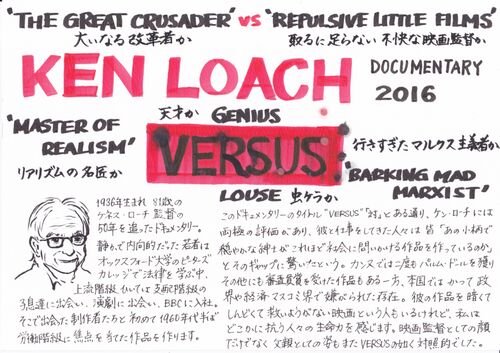 "THE GREAT CRUSADER" VS "REPULSIVE LITTLE FILMS"
大いなる改革者か 取るに足らない不快な映画監督か
KEN LOACH DOCUMENTARY 2016
天才か GENIUS
"MASTER OF REALISM"
リアリズムの名匠か
VERSUS
行きすぎたマルクス主義者か
"BARKING MAD MARXIST"
LOUSE 虫ケラか
1936年生まれ 81歳の
ケネス・ローチ監督の
50年を追ったドキュメンタリー。
静かで内向的だった若者は
オックスフォード大学のピーターズ
カレッジで法律を学ぶ中、
上流階級、ひいては支配階級の
子息達に出会い、演劇に出会い、BBCに入社。
そこで出会った制作者たちと初めて1960年代半ば
労働階級に焦点を当てた作品を作ります。
このドキュメンタリーのタイトル"VERSUS"「対」とある通り、ケン・ローチには
両極の評価があり、彼と仕事をしてきた人々は皆「あの小柄で
穏やかな紳士がこれほど社会に問いかける作品を作っているのか」
とそのギャップに驚いたという。カンヌでは二度もパルム・ドールを獲り
その他にも審査員賞を受けた作品もある一方、本国ではかつて政
界や経済・マスコミ界で嫌がられた存在。彼の作品を暗くて
しんどくて救いようがない映画という人もいるけれど、私は
どこかに抗う人々の生命力を感じます。映画監督としての顔
だけでなく父親としての姿もまたVERSUSの如く対照的でした。